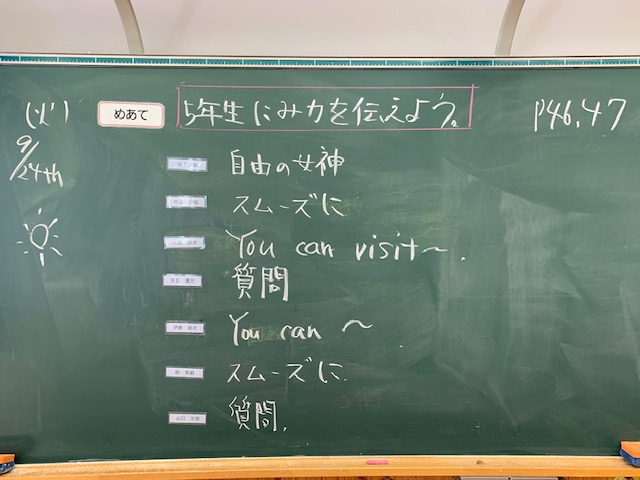 (火)
9/24th
めあて
5年生にみ力を伝えよう。
P46,47
自由の女神
スムーズに
You can visit~.
質問
You can ~
スムーズに
質問.